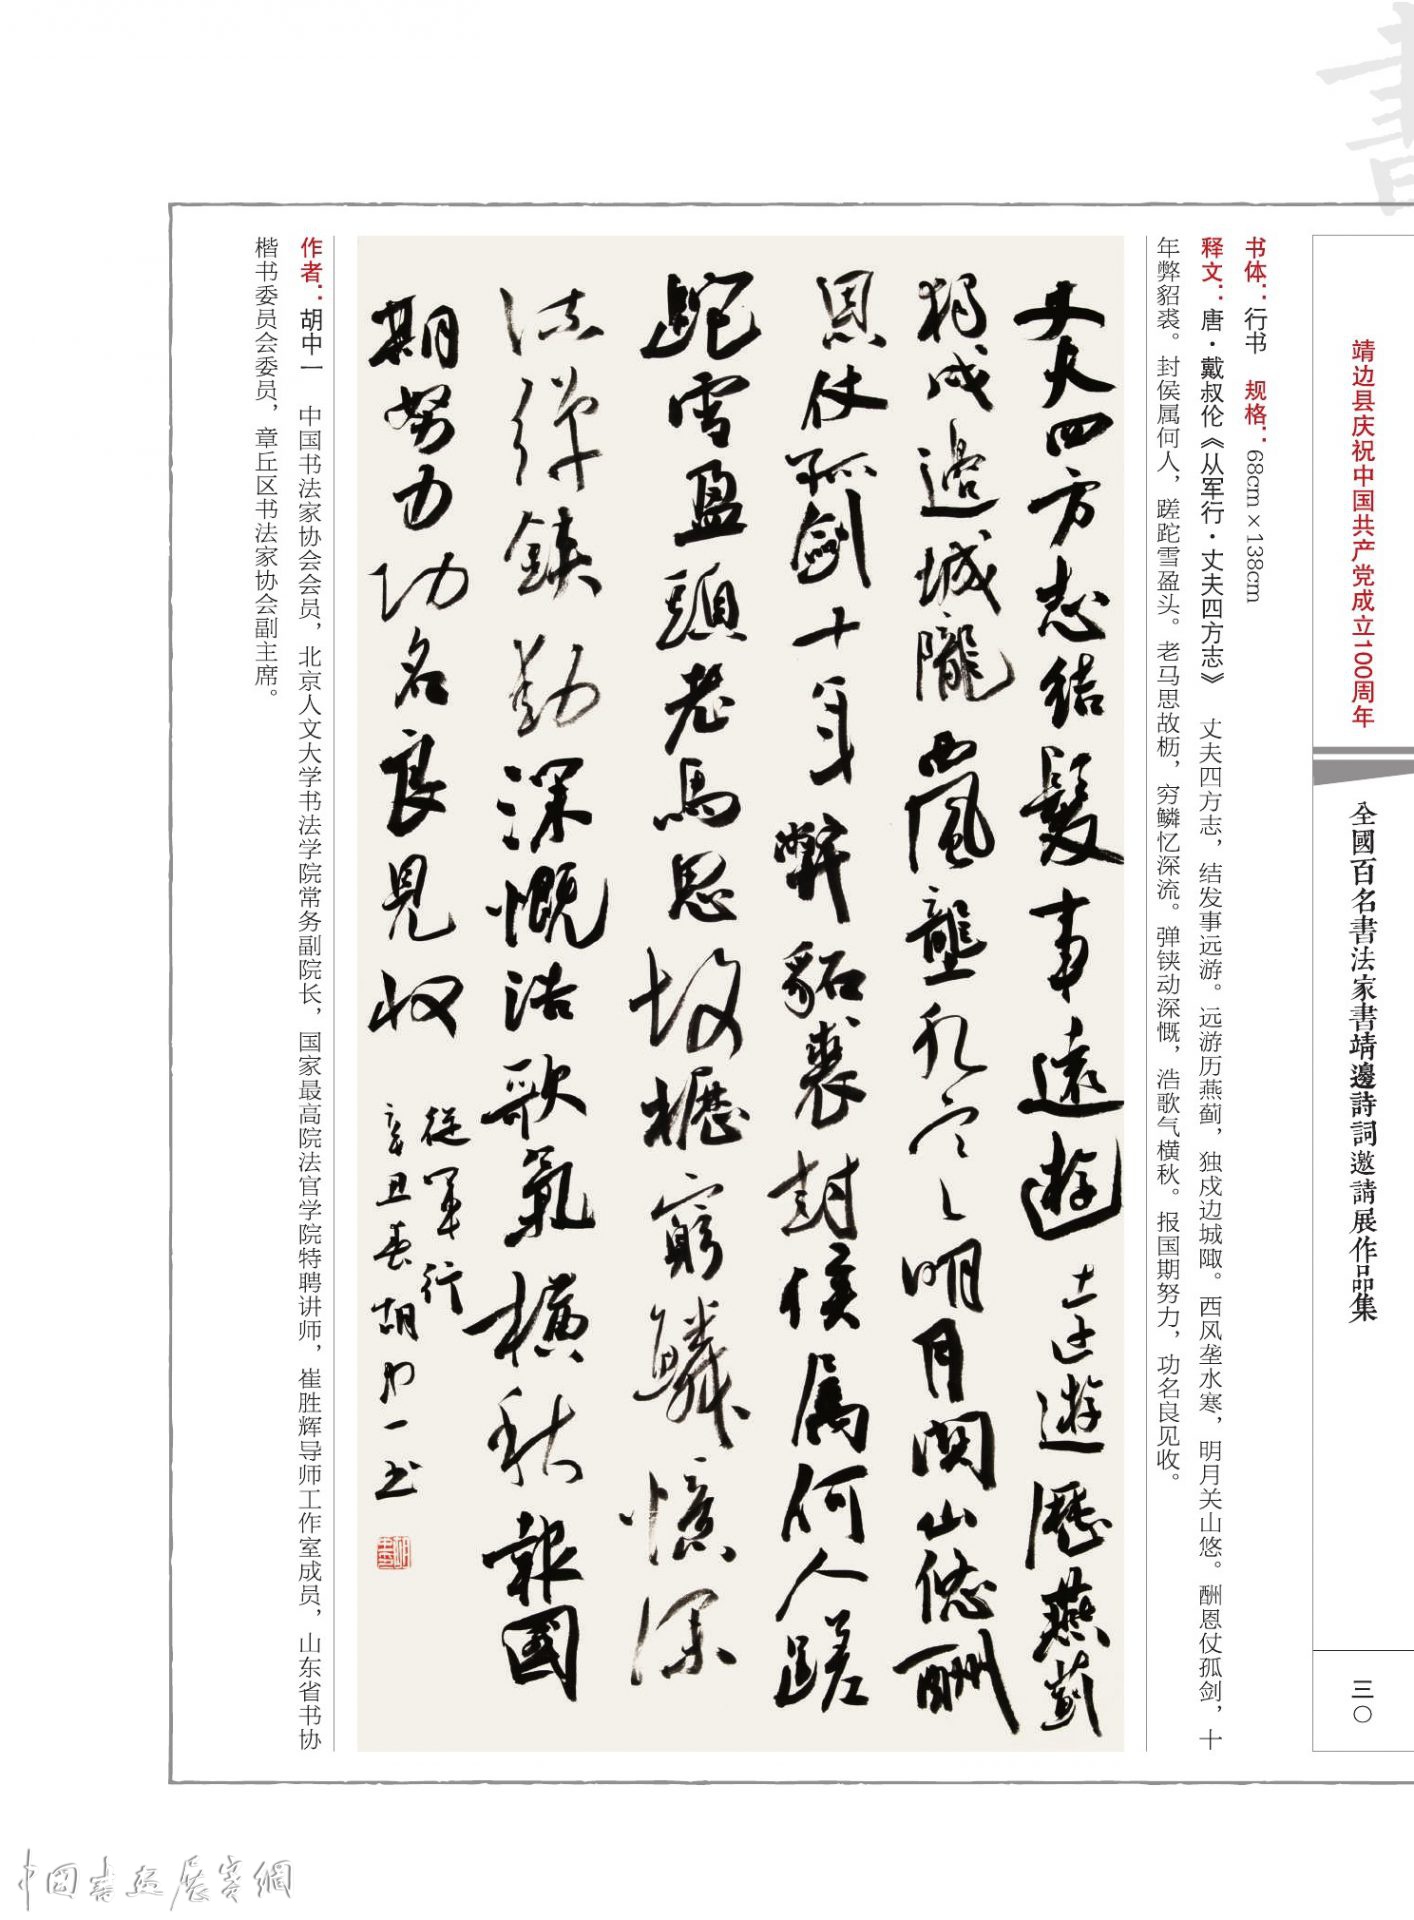 靖边县庆祝中国共产党成立100周年
全國百名書法家書靖邊詩詞邀請展作品集
三〇
书体：行书 规格：68cm×138cm
释文：唐·戴叔伦《从军行·丈夫四方志》 丈夫四方志，结发事远游。远游历燕蓟，独戍边城陬。西风垄水寒，明月关山悠。酬恩仗孤剑，十
年弊貂裘。封侯属何人，蹉跎雪盈头。老马思故枥，穷鳞忆深流。弹铗动深慨，浩歌气横秋。报国期努力，功名良见收。
丈夫四方志結髮事遠遊遠遊歷燕薊
獨戍邊城隴西風壟水寒明月關山悠酬
恩仗孤劍十年弊貂裘封侯屬何人蹉
跎雪盈頭老馬思故櫪窮鱗憶深
流彈鋏動深慨浩歌氣橫秋報國
期努力功名良見收
從軍行
辛丑春胡中一书
作者：胡中一 中国书法家协会会员，北京人文大学书法学院常务副院长，国家最高院法官学院特聘讲师，崔胜辉导师工作室成员，山东省书协
楷书委员会委员，章丘区书法家协会副主席。
書
中國書畫展賽網